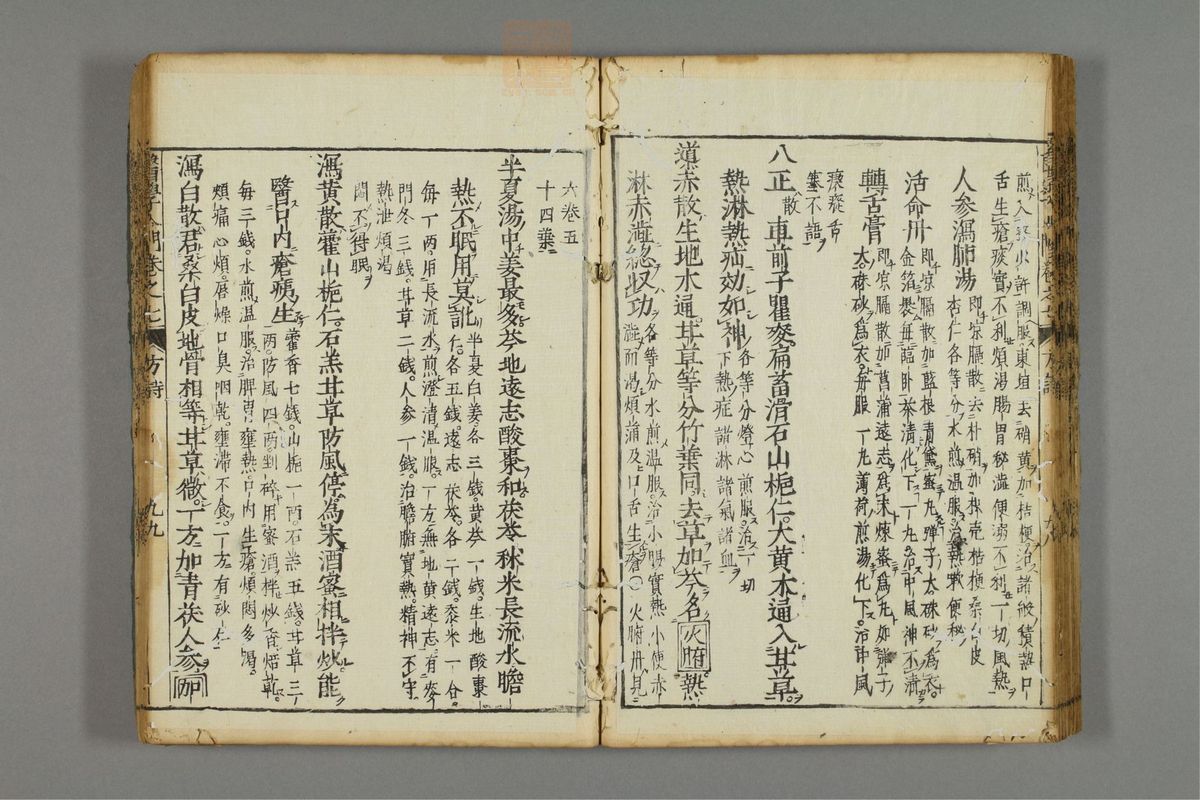 煎入蜜少許調服東垣去硝黃加桔梗治諸般積熱口
舌生瘡痰實不利煩湯腸胃秘澁便溺不利一切風熱
人參瀉肺湯 即凉膈散去朴硝加枳壳桔梗桑白皮
杏仁各等分水煎温服治熱嗽便秘
活命丹 即凉膈散加藍根青黛蜜丸彈子大硃砂爲衣
金箔裹每臨卧茶清化下一丸治中風神不清
轉舌膏 即凉膈散加菖蒲遠志爲末煉蜜爲丸如彈子
大硃砂爲衣每服一丸薄荷煎湯化下治中風
瘈瘲舌
塞不語
八正散車前子瞿麥萹蓄滑石山梔仁大黃木通入甘草
熱淋熱疝効如神 各等分燈心煎服治一切
下熱症諸淋諸氣諸血
導赤散生地水通甘草等分竹葉同去草加芩名火腑熱
淋赤澁總収功 各等分水煎温服治小腸實熱小便赤
澁而渴煩滿及口舌生瘡○火腑丹見
六卷五
十四葉
半夏湯中姜最多芩地遠志酸棗和茯苓秫米長流水膽
熱不眠用莫訛 半夏白姜各三錢黃芩一錢生地酸棗
仁各五錢遠志茯苓各二錢黍米一合
每一两用長流水煎澄清温服一方無地黄遠志有麥
門冬三錢甘草二錢人參一錢治膽腑實熱精神不守
熱泄煩渴
悶不得眠
瀉黃散藿山梔仁石羔甘草防風停為末酒蜜相拌炒能
醫口内瘡病生 藿香七錢山梔一两石羔五錢甘草三
两防風四两剉碎用蜜酒拌炒香焙乾
每三錢水煎温服治脾胃壅熱口内生瘡煩悶多渴
頰痛心煩唇燥口臭咽乾壅滞不食一方有砂仁
瀉白散君桑白皮地骨相等甘草微一方加青茯人參
醫學入門卷之七 方詩 九九